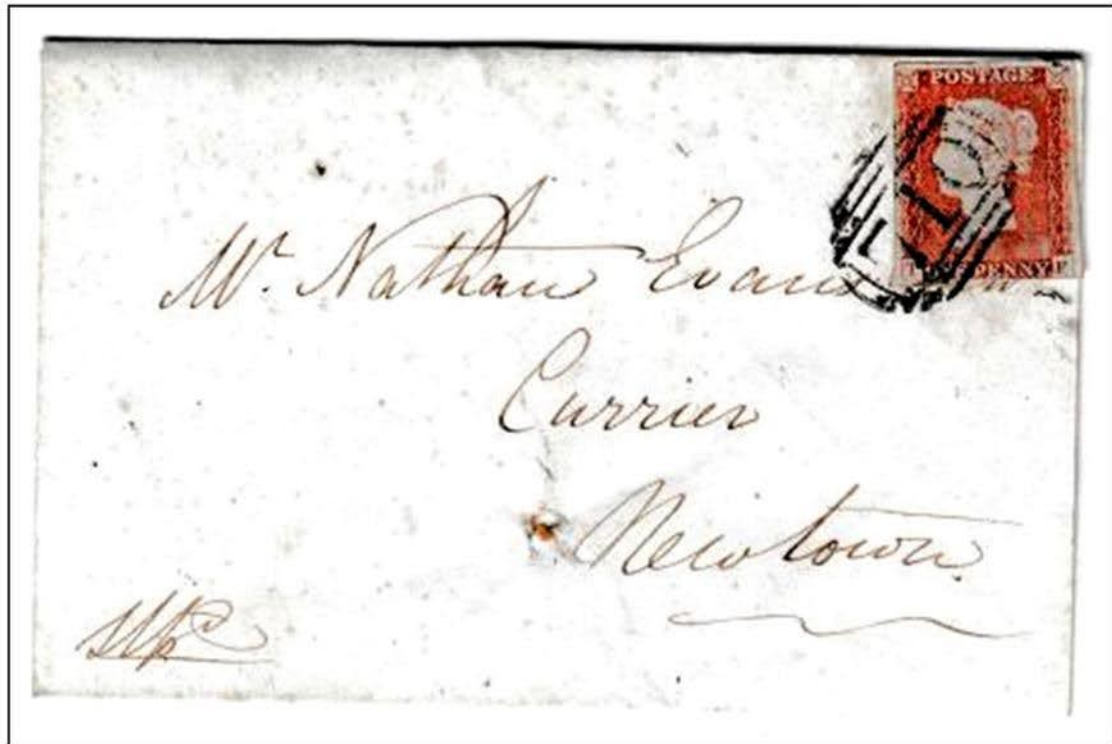 POSTAGE
PENNY
Mr. Nathan Evans
Currier
Newtown.